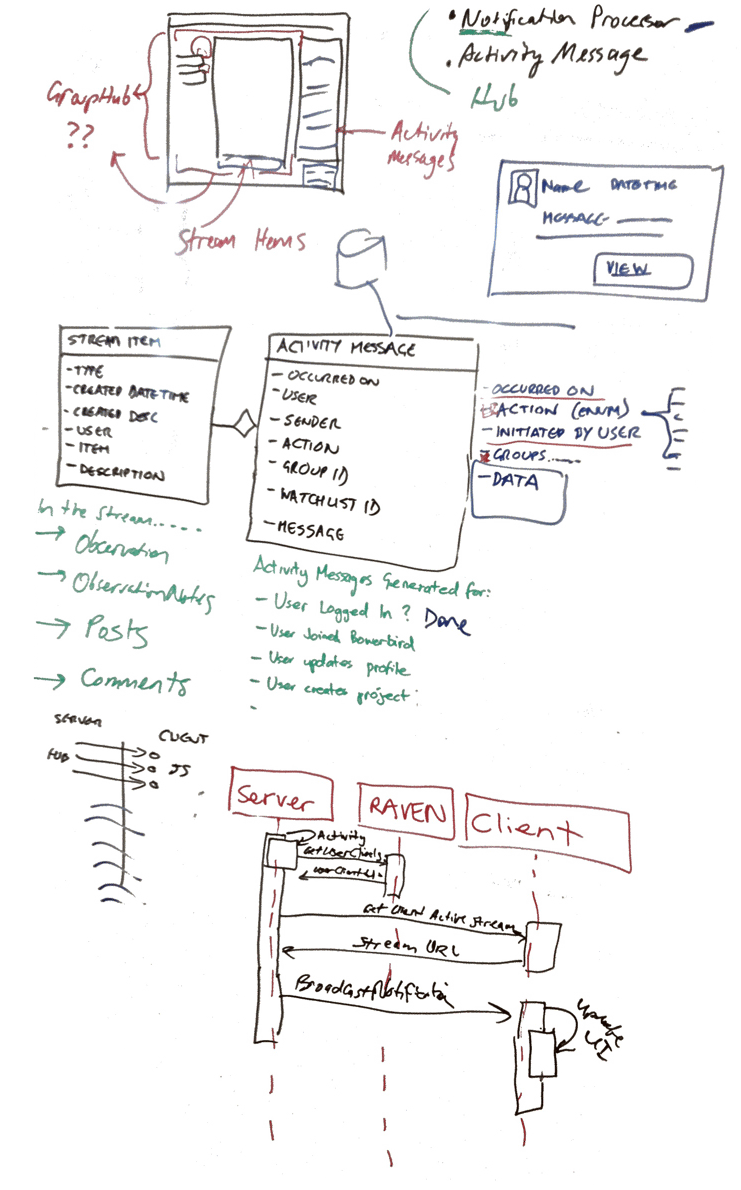 • Notification Processor
• Activity Message
Hub
GroupHub
??
Activity
Messages
Stream Items
Name DATETIME
MESSAGE
VIEW
STREAM ITEM
- TYPE
- CREATED DATETIME
- CREATED DESC
- USER
- ITEM
- DESCRIPTION
ACTIVITY MESSAGE
- OCCURRED ON
- USER
- SENDER
- ACTION
- GROUP ID
- WATCHLIST ID
- MESSAGE
- OCCURRED ON
- ACTION (ENUM)
- INITIATED BY USER
- GROUPS......
- DATA
In the Stream.....
→ Observation
→ ObservationNotes
→ Posts
→ Comments
Activity Messages Generated for:
- User Logged In ? Done
- User Joined Bowerbird
- User updates profile
- User creates project:
-
SERVER
CLIENT
HUB
JS
Server
RAVEN
Client
Activity
GetUserClientIds
UserClientIds
Get Client Active Stream
Stream URL
Broadcast Notification
Update
UI